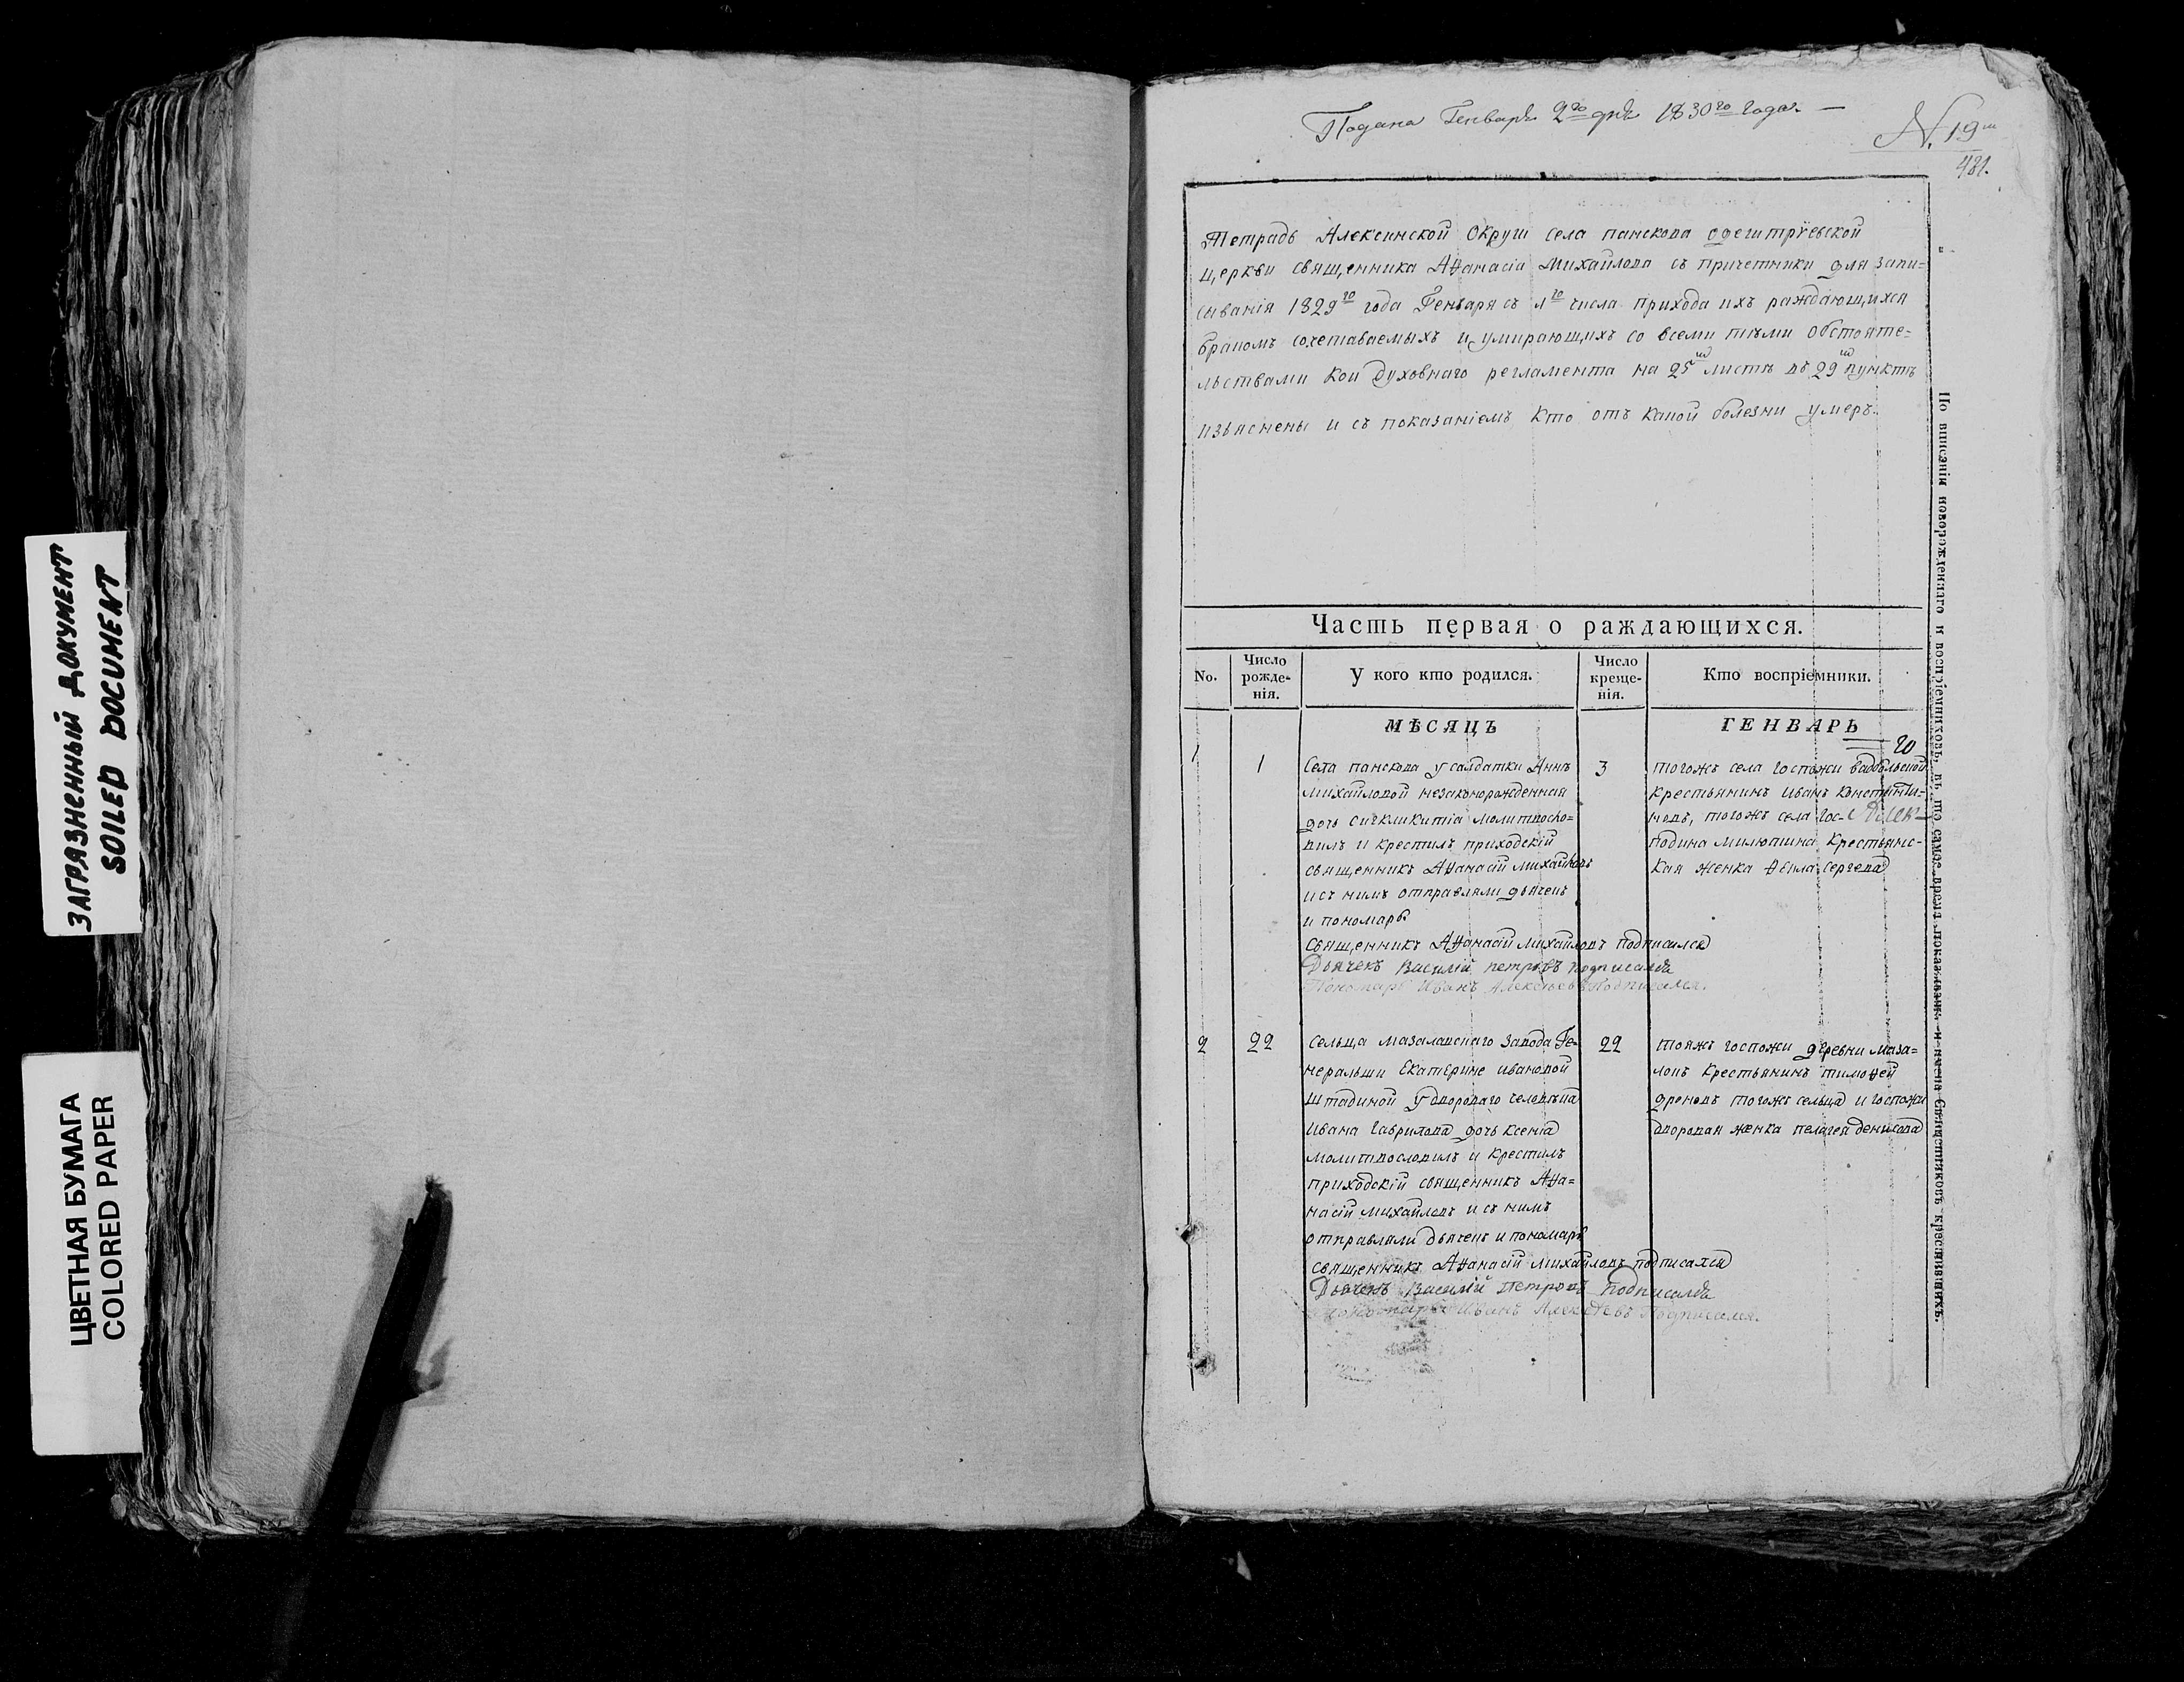 ЗАГРЯЗНЕННЫЙ ДОКУМЕНТ
SOILED DOCUMENT
ЦВЕТНАЯ БУМАГА
COLORED PAPER
Подана Генваря 2го дня 1830го года
N. 19
481.
Тетрадь Алексинской Округи села панскова одегитріевской
церкви священника Аѳанасіа Михайлова съ причетники для запи=
сыванія 1829го года Генваря съ 1го числа прихода ихъ раждающихся
бракомъ сочетаваемыхъ и умирающихъ со всеми тѣми обстояте=
льствами кои духовнаго регламента на 25 листѣ въ 29 пунктѣ
изъяснены и съ показаніемъ кто отъ какой болезни умеръ.
Часть первая о раждающихся.
No.
Число рожде-нія.
У кого кто родился.
Число креще-нія.
Кто воспріемники.
МѢСЯЦЪ
ГЕНВАРЬ
1
1
Села панскова у салдатки Анны
михайловой незаконорожденная
дочь Сигкликитіа молитвосло=
вилъ и крестилъ приходскій
священникъ Аѳанасій михайловъ
и съ нимъ отправляли дьячекъ
и пономарь
священникъ Аѳанасій михайловъ подписался
Дьячекъ Василій петровъ подписался
Пономарь Иванъ Алексѣевъ Подписался.
3
тогожъ села госпожи
крестьянинъ Иванъ константи-
новъ, тогожъ села гос-
подина милютина крестьянс-
кая женка Ѳекла Сергева
2
22
сельца мазаловскаго завода Ге-
неральши Екатерине ивановой
у двороваго человѣка
ивана гаврилова дочь ксеніа
молитвословилъ и крестилъ
приходскій священникъ Аѳа=
насій михайловъ и съ нимъ
отправляли дьячекъ и пономарь
священникъ Аѳанасій михайловъ подписался
Дьячекъ Василій Петровъ Подписался
пономарь Иванъ Алексѣевъ Подписался.
22
тояжъ госпожи деревни маза=
крестьянинъ тимоѳей
тогожъ сельца и госпожи
дворовая женка пелагея денисова
По вписаніи новорожденнаго и воспріемниковъ, въ то самое время показывать и имена Священниковъ крестившихъ.